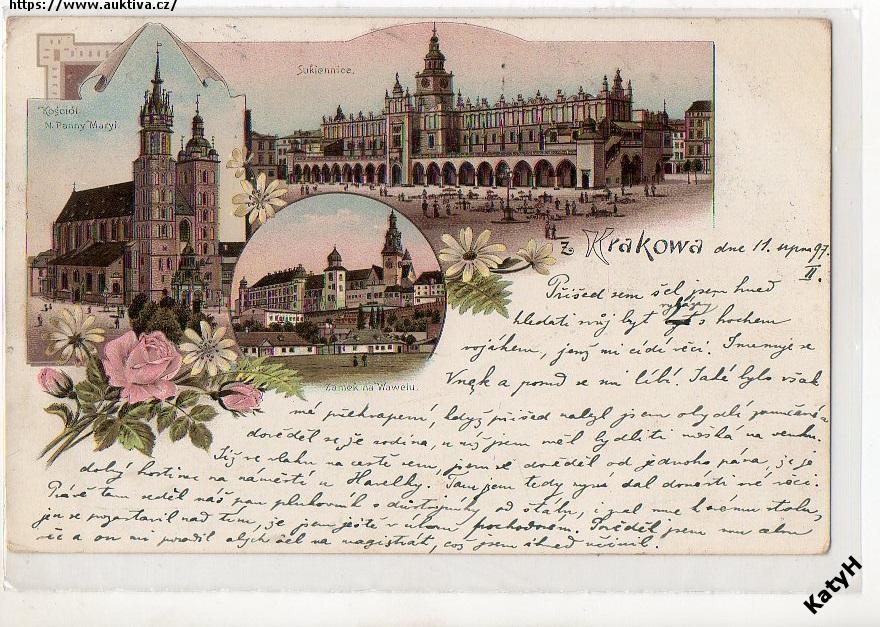 https://www.auktiva.cz/
Sukiennice.
Kościół
N. Panny Maryi.
Zamek na Wawelu.
Z Krakowa dne 11. srpna 97.
II.
Přišed sem šel jsem hned
hledati svůj byt s hochem
vojákem, jenž mi čídí věci. Jmenuje se
a posud se mi líbí. Také bylo však
mé překvapení, když přišed nalezl jsem obydlí zamčené a
dověděl se, že rodina, u níž jsem měl bydleti mešká na venku.
Již ve vlaku na cestě sem, jsem se dověděl od jednoho pána, že je
dobrý hostinec na náměstí u Havelky. Tam jsem tedy nyní dal donésti své věci.
Právě tam seděl náš pan plukovník s důstojníky od štábu, i zval mne k svému stolu,
jen se pozastavil nad tím, že jsem ještě v úboru pochodovém. Pověděl jsem mu celou
věc a on mi poradil abych šel na magistrát, což jsem ihned učinil.
KatyH